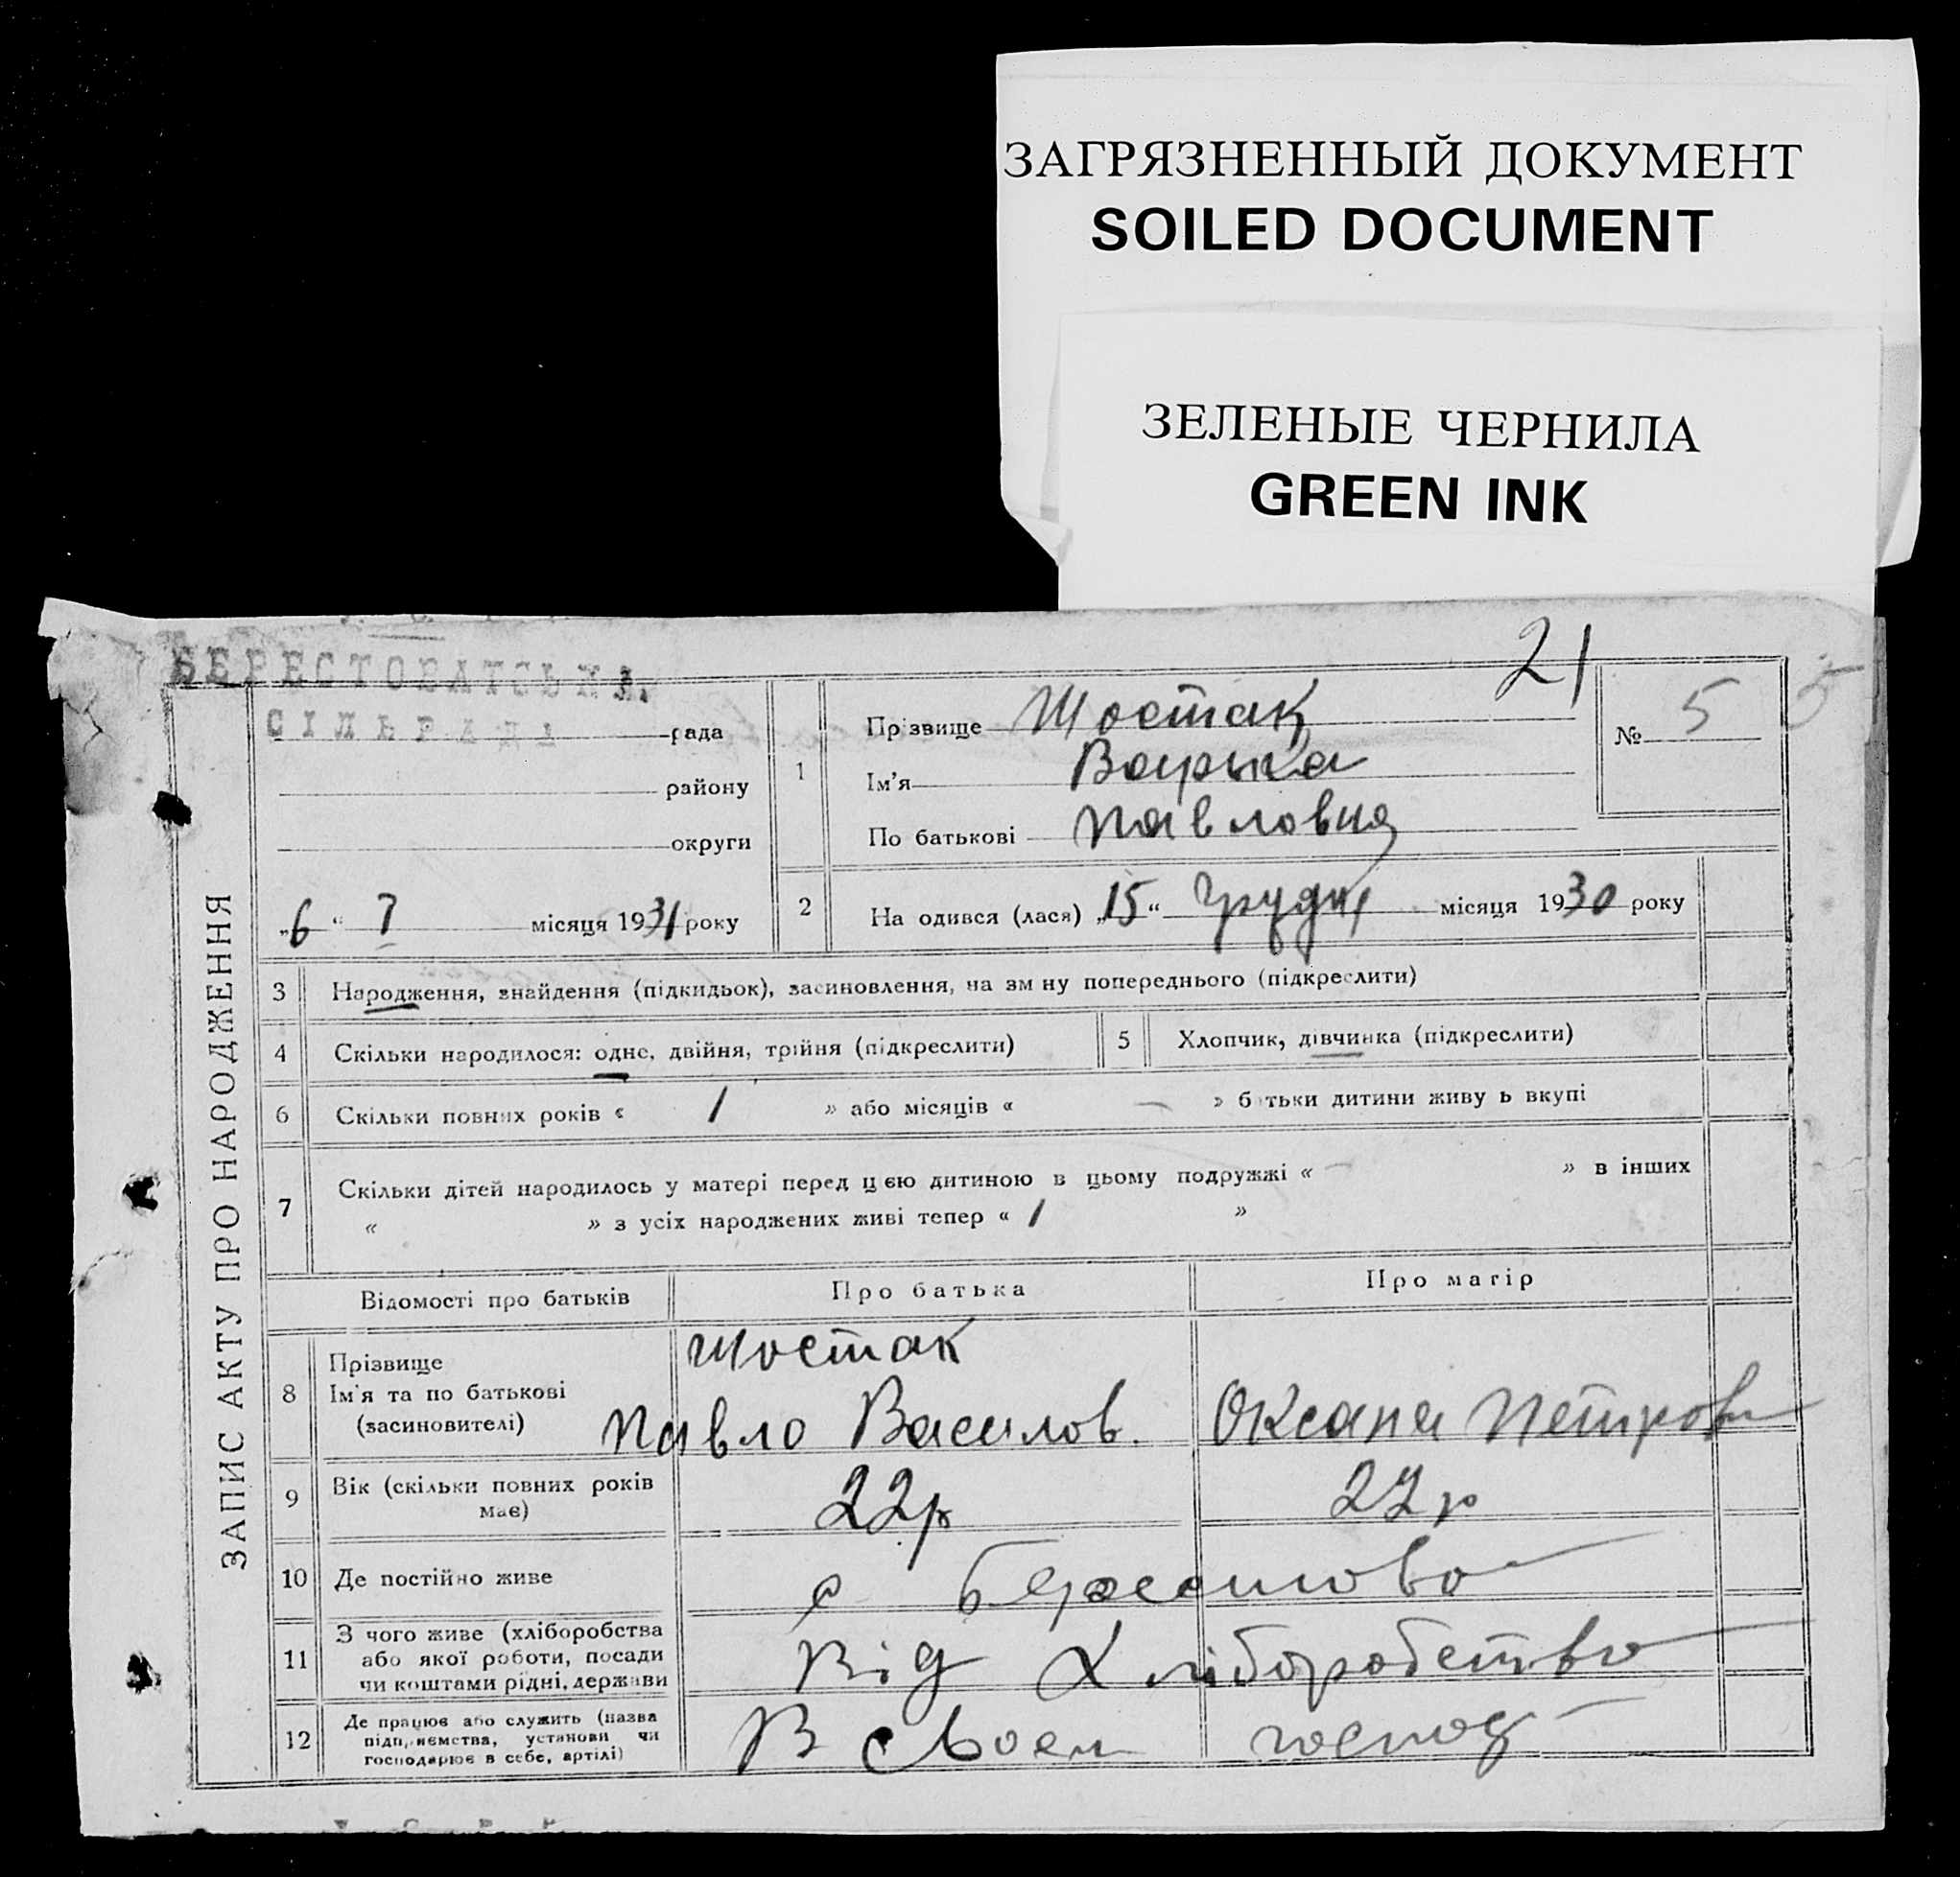 ЗАГРЯЗНЕННЫЙ ДОКУМЕНТ
SOILED DOCUMENT
ЗЕЛЕНЫЕ ЧЕРНИЛА
GREEN INK
21
БЕРЕСТОВАТСЬКА
СІЛЬРАДА рада
району
округи
„6“ 7 місяця 1931 року
ЗАПИС АКТУ ПРО НАРОДЖЕННЯ
1 Прізвище Шостак
Ім'я
По батькові Павловна
№ 5 5
2 На одився (лася) „15“ Грудн місяця 1930 року
3 Народження, знайдення (підкидьок), засиновлення, на зм ну попереднього (підкреслити)
4 Скільки народилося: одне, двійня, трійня (підкреслити)
5 Хлопчик, дівчинка (підкреслити)
6 Скільки повних років « 1 » або місяців « — » б тьки дитини живу ь вкупі
7 Скільки дітей народилось у матері перед цією дитиною в цьому подружжі « — » в інших
« » з усіх народжених живі тепер « 1 »
Відомості про батьків Про батька Про матір
8 Прізвище Шостак
Ім'я та по батькові
(засиновителі) Павло Василов. Оксана Петровн
9 Вік (скільки повних років має) 22р 22р
10 Де постійно живе с
11 З чого живе (хліборобства
або якої роботи, посади
чи коштами рідні, держави Від Хліборобство
12 Де працює або служить (назва
підприємства, установи чи
господарює в себе, артілі) В своем господ